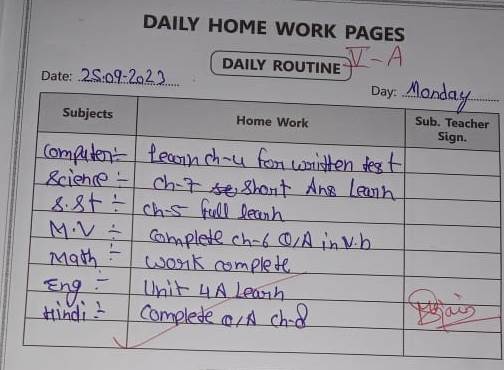 DAILY HOME WORK PAGES
DAILY ROUTINE V-A
Date: 25.09.2023
Day: Monday
Subjects Home Work Sub. Teacher Sign.
Computer:- Learn ch-4 for written test
Science:- Ch-7 Short Ans Learn
S.St:- ch-5 full learn
M.V:- Complete ch-6 Q/A in N.b
Math:- work complete
Eng:- Unit 4A Learn
Hindi:- Complete Q/A ch-8